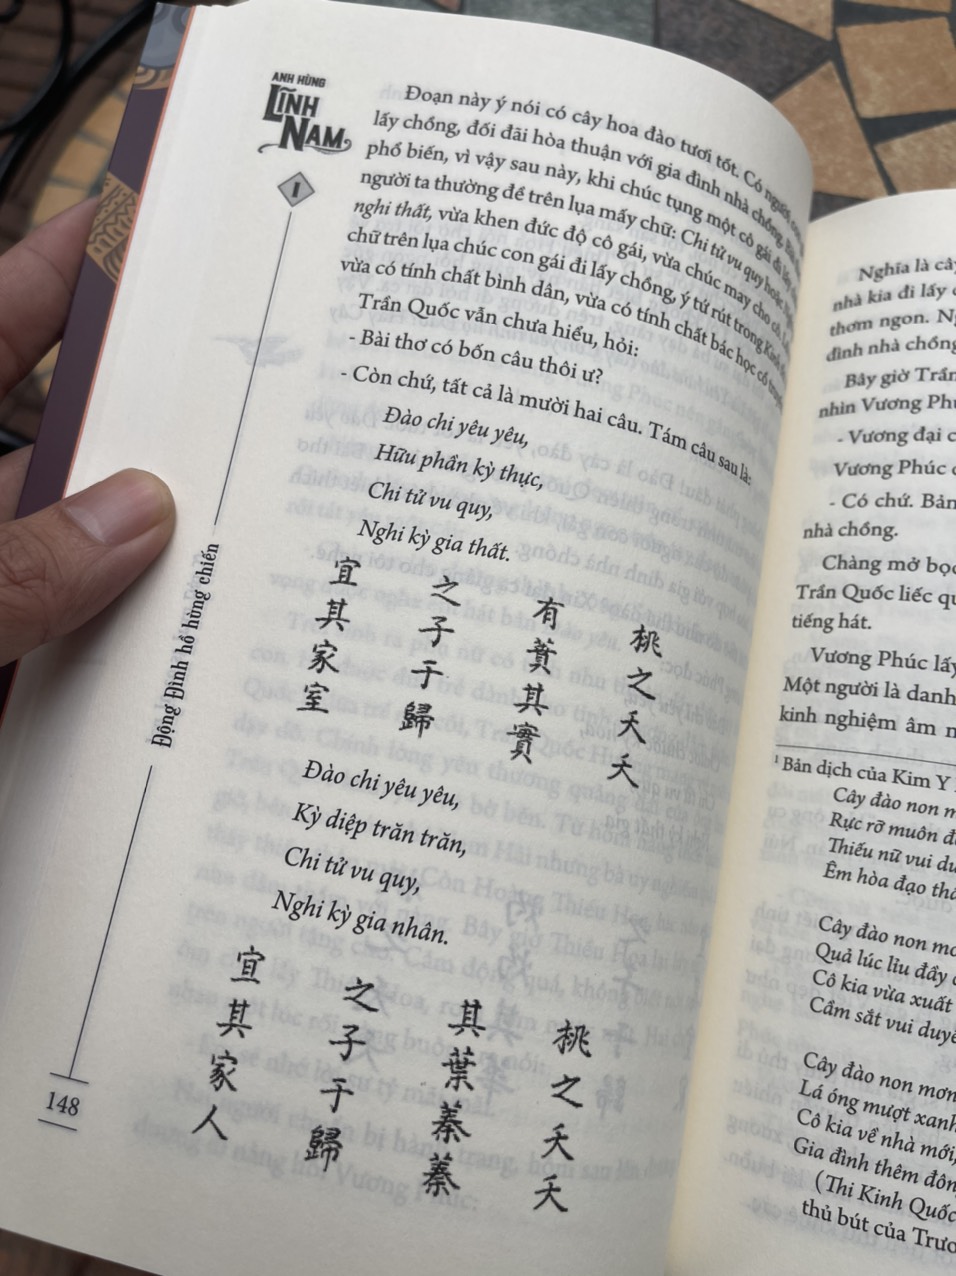 ANH HÙNG
LĨNH
NAM
I
Động Đình hồ hùng chiến
148
Đoạn này ý nói có cây hoa đào tươi tốt. Có người con
lấy chồng, đối đãi hòa thuận với gia đình nhà chồng.
phổ biến, vì vậy sau này, khi chúc tụng một cô gái đi lấy
người ta thường đề trên lụa mấy chữ: Chi tử vu quy hoặc
nghi thất, vừa khen đức độ cô gái, vừa chúc may cho cô.
chữ trên lụa chúc con gái đi lấy chồng, ý tứ rút trong Kinh
vừa có tính chất bình dân, vừa có tính chất bác học cổ
Trần Quốc vẫn chưa hiểu, hỏi:
- Bài thơ có bốn câu thôi ư?
- Còn chứ, tất cả là mười hai câu. Tám câu sau là:
Đào chi yêu yêu,
Hữu phần kỳ thực,
Chi tử vu quy,
Nghi kỳ gia thất.
桃之夭夭
有蕡其實
之子于歸
宜其家室
Đào chi yêu yêu,
Kỳ diệp trăn trăn,
Chi tử vu quy,
Nghi kỳ gia nhân.
桃之夭夭
其葉蓁蓁
之子于歸
宜其家人
Nghĩa là cây
nhà kia đi lấy
thơm ngon.
đình nhà chồng
Bây giờ Trần
nhìn Vương Phúc
- Vương đại
Vương Phúc
- Có chứ. Bản
nhà chồng.
Chàng mở bọc
Trần Quốc liếc
tiếng hát.
Vương Phúc lấy
Một người là danh
kinh nghiệm âm
1 Bản dịch của Kim Y
Cây đào non
Rực rỡ muôn
Thiếu nữ vui
Êm hòa đạo
Cây đào non
Quả lúc lỉu đầy
Cô kia vừa xuất
Cầm sắt vui duyên
Cây đào non mơn
Lá óng mượt xanh
Cô kia về nhà mới,
Gia đình thêm đông
(Thi Kinh Quốc
thủ bút của